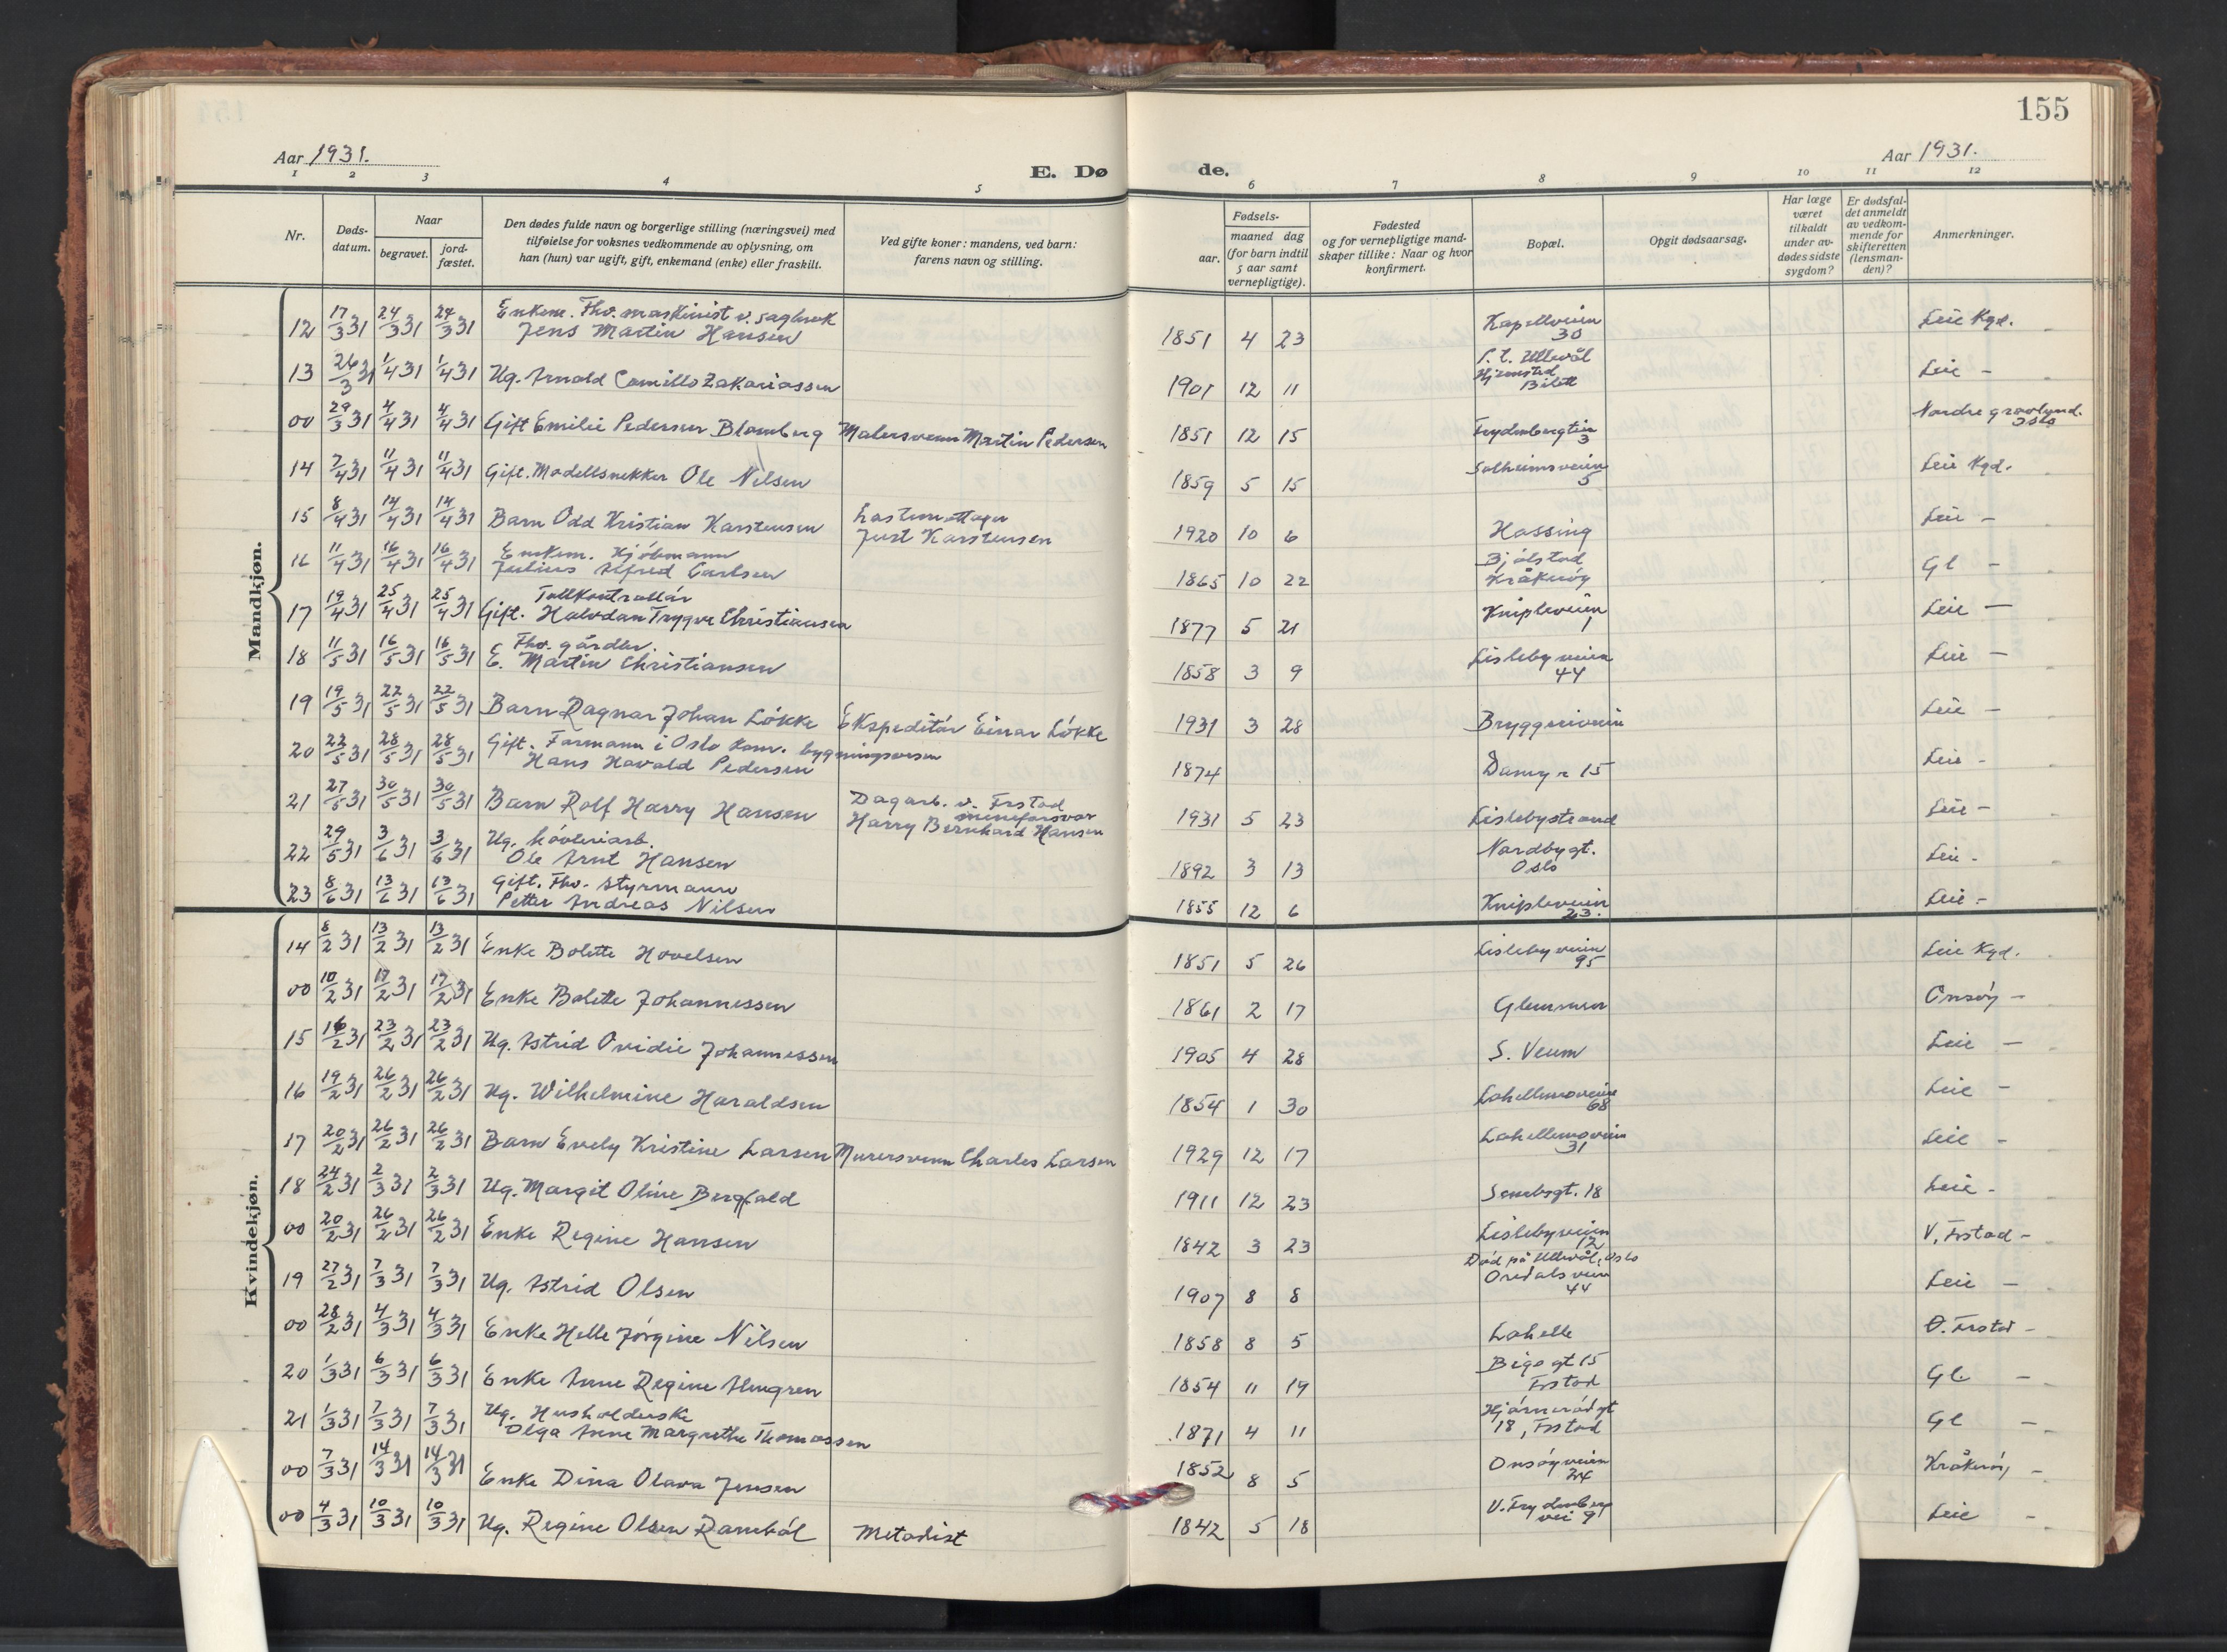 155
Aar 1931.
E. Dø
de.
Aar 1931.
1 2 3 4 5 6 7 8 9 10 11 12
Nr.
Døds-
datum.
Naar
begravet.
jord-
fæstet.
Den dødes fulde navn og borgerlige stilling (næringsvei) med
tilføielse for voksnes vedkommende av oplysning, om
han (hun) var ugift, gift, enkemand (enke) eller fraskilt.
Ved gifte koner: mandens, ved barn:
farens navn og stilling.
Fødsels-
aar.
maaned dag
(for barn indtil
5 aar samt
vernepligtige).
Fødested
og for vernepligtige mand-
skaper tillike: Naar og hvor
konfirmert.
Bopæl.
Opgit dødsaarsag.
Har læge
været
tilkaldt
under av-
dødes sidste
sygdom?
Er dødsfal-
det anmeldt
av vedkom-
mende for
skifteretten
(lensman-
den)?
Anmerkninger.
Mandkjøn.
12 17/3 31 24/3 31 24/3 31 Enkem. Fhv. maskinist v. sagbruk
Jens Martin Hansen 1851 4 23 Kapellveien 30 Leie Kgd.
13 26/3 31 1/4 31 1/4 31 Ug. Arnold Camillo Zakariassen 1901 12 11 P.t. Ullevål
Hjemsted Leie -
00 29/3 31 4/4 31 4/4 31 Gift Emilie Pedersen Blomberg Malersvenn Martin Pedersen 1851 12 15 3 Nordre gravlund. Oslo
14 7/4 31 11/4 31 11/4 31 Gift. Modellsnekker Ole Nilsen 1859 5 15 Solheimsveien 5 Leie Kgd.
15 8/4 31 14/4 31 14/4 31 Barn Odd Kristian Karstensen Lastemottager
Just Karstensen 1920 10 6 Hassing Leie -
16 11/4 31 16/4 31 16/4 31 Enkem. Kjöbmann
Julius Alfred Carlsen 1865 10 22 Bjölstad
Kråkeröy Gl -
17 19/4 31 25/4 31 25/4 31 Tollkontrollör
Gift. Halvdan Trygve Christiansen 1877 5 21 Knipleveien 1 Leie -
18 11/5 31 16/5 31 16/5 31 Fhv. gårdbr.
E. Martin Christiansen 1858 3 9 Lislebyveien 44 Leie -
19 19/5 31 22/5 31 22/5 31 Barn Ragnar Johan Lökke Ekspeditör Einar Lökke 1931 3 28 Bryggeriveien Leie -
20 22/5 31 28/5 31 28/5 31 Gift. Formann i Oslo kom. bygningsvesen
Hans Havald Pedersen 1874 Damyr 15 Leie -
21 27/5 31 30/5 31 30/5 31 Barn Rolf Harry Hansen Dagarb. v. Frstad
mineforsvar
Harry Bernhard Hansen 1931 5 23 Lislebystrand Leie -
22 29/5 31 3/6 31 3/6 31 Ug. hövleriarb.
Ole Arnt Hansen 1892 3 13 Nordbygt.
Oslo Leie -
23 8/6 31 13/6 31 13/6 31 Gift. Fhv. styrmann
Petter Andreas Nilsen 1855 12 6 Knipleveien 23. Leie -
Kvindekjøn.
14 8/2 31 13/2 31 13/2 31 Enke Bolette Hovelsen 1851 5 26 Lislebyveien 95 Leie Kgd.
00 10/2 31 17/2 31 17/2 31 Enke Bolette Johannessen 1861 2 17 Glemmen Onsöy -
15 16/2 31 23/2 31 23/2 31 Ug. Astrid Ovidie Johannessen 1905 4 28 S. Veum Leie -
16 19/2 31 26/2 31 26/2 31 Ug. Wilhelmine Haraldsen 1854 1 30 Lahellemoveien 68 Leie -
17 20/2 31 26/2 31 26/2 31 Barn Evely Kristine Larsen Murersvenn Charles Larsen 1929 12 17 Lahellemoveien 31 Leie -
18 24/2 31 2/3 31 2/3 31 Ug. Margit Oline Bergfald 1911 12 23 18 Leie -
00 20/2 31 26/2 31 26/2 31 Enke Regine Hansen 1842 3 23 Lislebyveien 12 V. Frstad -
19 27/2 31 7/3 31 7/3 31 Ug. Astrid Olsen 1907 8 8 Död på Ullevål, Oslo
Oredalsveien 44 Leie -
00 28/2 31 4/3 31 4/3 31 Enke Helle Jörgine Nilsen 1858 8 5 Lahelle Ö. Frstad -
20 1/3 31 6/3 31 6/3 31 Enke Anne Regine Almgren 1854 11 19 gt 15
Frstad Gl. -
21 1/3 31 7/3 31 7/3 31 Ug. Husholderske
Olga Anne Margrethe Thomassen 1871 4 11 18, Frstad Gl -
00 7/3 31 14/3 31 14/3 31 Enke Dina Olava Jensen 1852 8 5 Onsöyveien 24 Kråkeröy -
00 4/3 31 10/3 31 10/3 31 Ug. Regine Olsen Ramböl Metodist 1842 5 18 V. Frydenberg
vei 9 Leie -